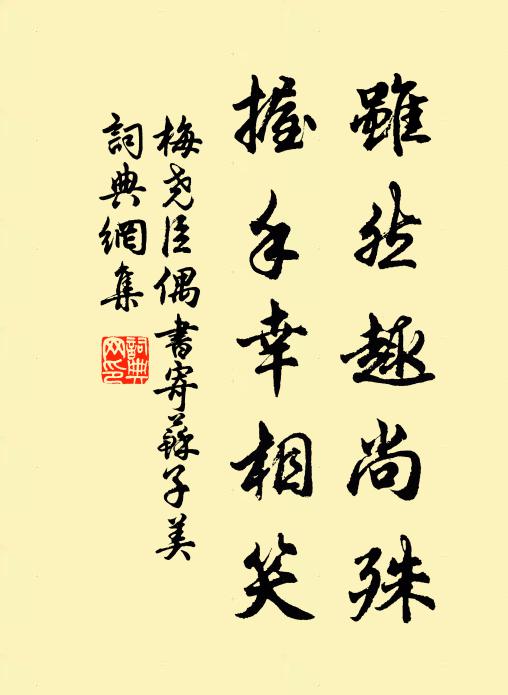 雖然趣尚殊
握手幸相笑
梅堯臣偶書寄蘇子美
詞典網集
詞典網印